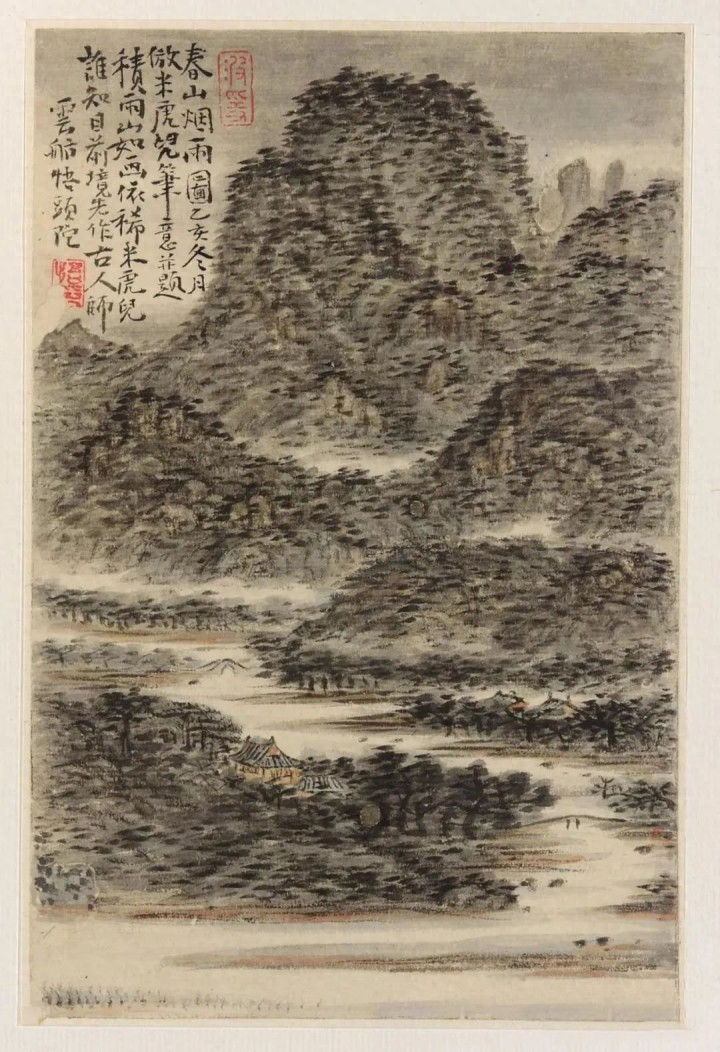 春山烟雨圖乙亥冬月
倣米虎兒筆意并題
積雨山如画依稀米虎兒
誰知目前境先作古人師
雲舫悟頭陀